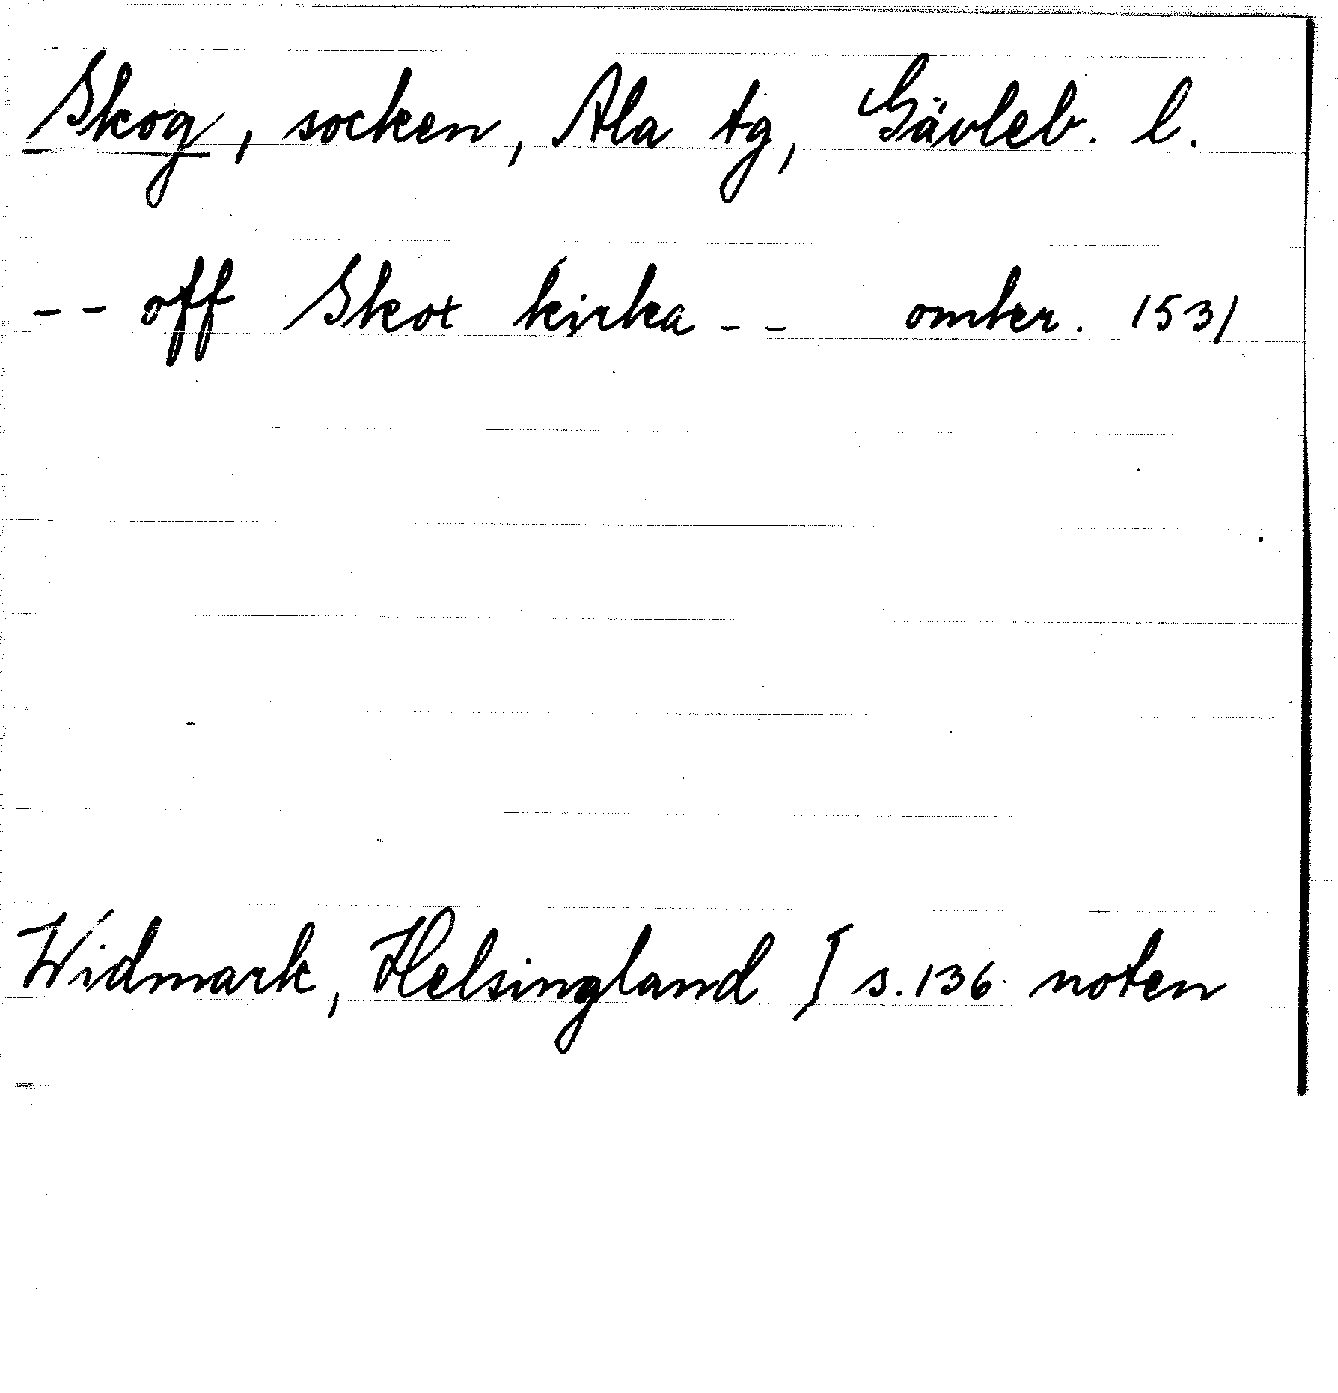 Skog, socken, Ala tg, Gävleb. l.
-- off Skox kirka -- omkr. 1531
Widmark, Helsingland I s. 136 noten